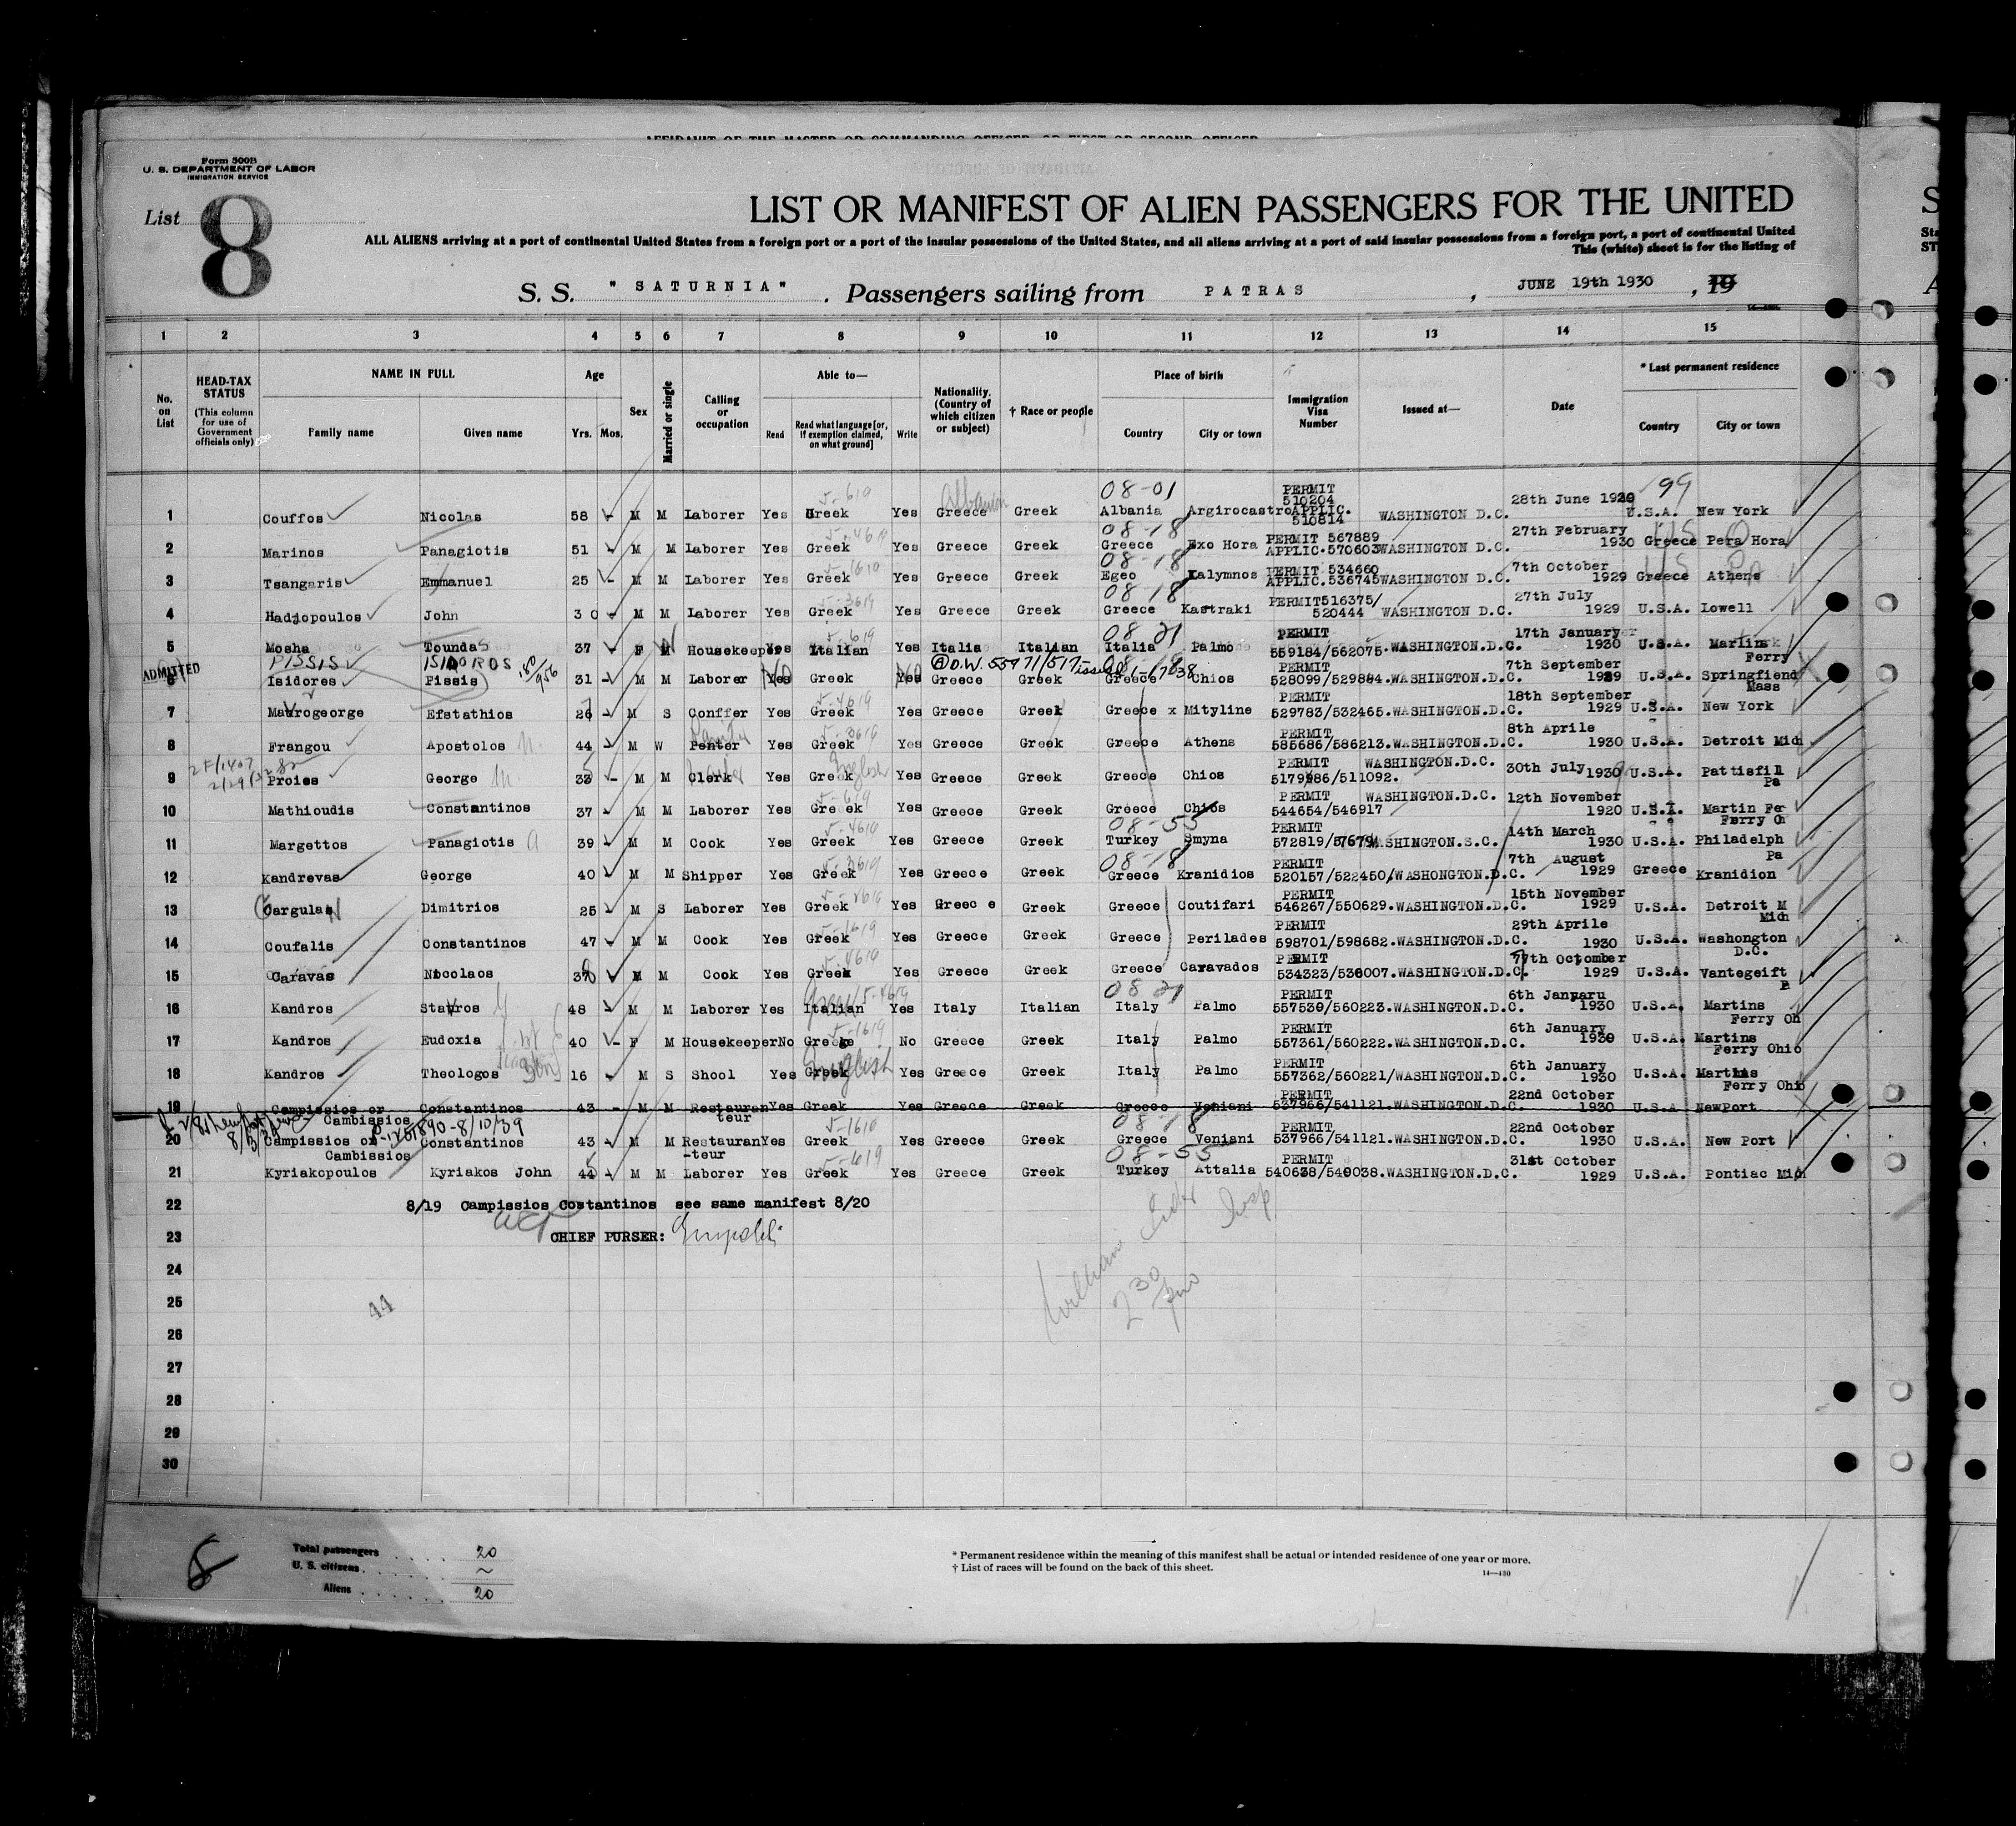 Form 500B
U. S. DEPARTMENT OF LABOR
IMMIGRATION SERVICE
List 8
LIST OR MANIFEST OF ALIEN PASSENGERS FOR THE UNITED
ALL ALIENS arriving at a port of continental United States from a foreign port or a port of the insular possessions of the United States, and all aliens arriving at a port of said insular possessions from a foreign port, a port of continental United
This (white) sheet is for the listing of
S. S. "SATURNIA". Passengers sailing from PATRAS, JUNE 19th 1930, 19
1 2 3 4 5 6 7 8 9 10 11 12 13 14 15
No. on List
HEAD-TAX STATUS (This column for use of Government officials only)
NAME IN FULL Family name Given name
Age Yrs. Mos.
Sex
Married or single
Calling or occupation
Able to— Read Read what language [or, if exemption claimed, on what ground] Write
Nationality. (Country of which citizen or subject)
† Race or people
Place of birth Country City or town
Immigration Visa Number
Issued at—
Date
* Last permanent residence Country City or town
1 Couffos Nicolas 58 - M M Laborer Yes Greek Yes Greece Albanian Greek 08-01 Albania Argirocastro PERMIT 510204 APPLIC. 510814 WASHINGTON D.C. 28th June 1929 U.S.A. New York 99
2 Marinos Panagiotis 51 - M M Laborer Yes Greek Yes Greece Greek 08-18 Greece Exo Hora PERMIT 567889 APPLIC.570603 WASHINGTON D.C. 27th February 1930 Greece Pera Hora
3 Tsangaris Emmanuel 25 - M M Laborer Yes Greek Yes Greece Greek 08-18 Egeo Kalymnos PERMIT 534660 APPLIC.536745 WASHINGTON D.C. 7th October 1929 Greece Athens
4 Hadjopoulos John 30 - M M Laborer Yes Greek Yes Greece Greek 08-18 Greece Kastraki PERMIT516375/520444 WASHINGTON D.C. 27th July 1929 U.S.A. Lowell
5 Mosha Toundas 37 F Housekeeper Yes Italian Yes Italia Italian 08 21 Italia Palmo PERMIT 559184/562075.WASHINGTON D.C. 17th January 1930 U.S.A. Martins Ferry
ADMITTED PISSIS ISIDOROS
6 Isidores Pissis 31 - M M Laborer Yes No Greek Yes No Greece Greek Greece Chios PERMIT 528099/529884.WASHINGTON.D.C. 7th September 1929 U.S.A. Springfiend Mass
7 Mavrogeorge Efstathios 26 M S Conffer Yes Greek Yes Greece Greek Greece x Mityline PERMIT 529783/532465.WASHINGTON.D.C. 18th September 1929 U.S.A. New York
8 Frangou Apostolos 44 - M W Penter Yes Greek Yes Greece Greek Greece Athens PERMIT 585686/586213.WASHINGTON.D.C. 8th Aprile 1930 U.S.A. Detroit Mich
9 Proies George M M Clerk Yes Greek English Yes Greece Greek Greece Chios PERMIT 5179986/511092. WASHINGTON.D.C. 30th July 1930 U.S.A. Pattisfil Pa
10 Mathioudis Constantinos 37 - M M Laborer Yes Greek Yes Greece Greek Greece Chios PERMIT 544654/546917 WASHINGTON.D.C. 12th November 1920 U.S.A. Martin Fe Ferry O
11 Margettos Panagiotis 39 M M Cook Yes Greek Yes Greece Greek 08-55 Turkey Smyna PERMIT WASHINGTON.S.C. 14th March 1930 U.S.A. Philadelph Pa
12 Kandrevas George 40 M M Shipper Yes Greek Yes Greece Greek 08-18 Greece Kranidios PERMIT 520157/522450/WASHONGTON.D.C. 7th August 1929 Greece Kranidion
13 Dimitrios 25 M S Laborer Yes Greek Yes Greec e Greek Greece Coutifari PERMIT 546267/550629.WASHINGTON.D.C. 15th November 1929 U.S.A. Detroit M Mich
14 Coufalis Constantinos 47 M M Cook Yes Greek Yes Greece Greek Greece Perilades PERMIT 598701/598682.WASHINGTON.D.C. 29th Aprile 1930 U.S.A. Washongton D.C.
15 Caravas Nicolaos M M Cook Yes Greek Yes Greece Greek Greece Caravados PERMIT 534323/536007.WASHINGTON.D.C. 7th Octomber 1929 U.S.A. Vantegeift
16 Kandros Stavros 48 - M M Laborer Yes Italian Yes Italy Italian 08 21 Italy Palmo PERMIT 557530/560223.WASHINGTON.D.C. 6th Janyaru 1930 U.S.A. Martins Ferry Oh
17 Kandros Eudoxia 40 - F M Housekeeper No Greece No Greece Greek Italy Palmo PERMIT 557361/560222.WASHINGTON.D.C. 6th January 1930 U.S.A. Martins Ferry Ohio
18 Kandros Theologos son 16 M S Shool Yes Greek English Yes Greece Greek Italy Palmo PERMIT 557362/560221/WASHINGTON.D.C. 6th January 1930 U.S.A. Martins Ferry Ohio
19 Campissios or Cambissios Constantinos 43 - M M Restauranteur Yes Greek Yes Greece Greek Greece Veniani PERMIT 537966/541121.WASHINGTON.D.C. 22nd October 1930 U.S.A Newport
20 Campissios or Cambissios Constantinos 43 - M M Restauran-teur Yes Greek Yes Greece Greek 08-18 Greece Veniani PERMIT 537966/541121.WASHINGTON.D.C. 22nd October 1930 U.S.A. New Port
21 Kyriakopoulos Kyriakos John 44 - M M Laborer Yes Greek Yes Greece Greek 08-55 Turkey Attalia PERMIT 540638/540038.WASHINGTON.D.C. 31st October 1929 U.S.A. Pontiac Mich
22 8/19 Campissios Costantinos see same manifest 8/20
23 CHIEF PURSER:
24
25
44
26
27
28
29
30
8
Total passengers 20
U. S. citizens ~
Aliens 20
* Permanent residence within the meaning of this manifest shall be actual or intended residence of one year or more.
† List of races will be found on the back of this sheet.
14—430